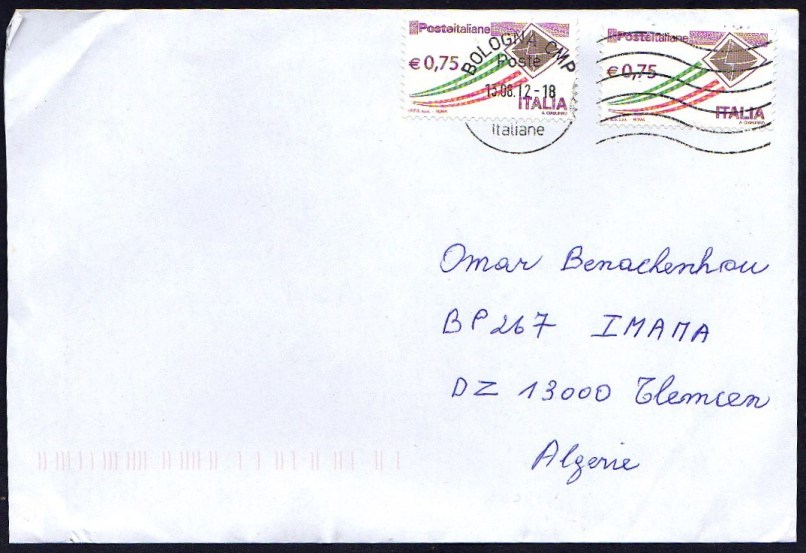 Posteitaliane
€ 0,75
ITALIA
Posteitaliane
€ 0,75
ITALIA
BOLOGNA CMP
Poste
13.08.12-18
Italiane
Omar Benachenhou
BP 267 IMAMA
DZ 13000 Tlemcen
Algerie